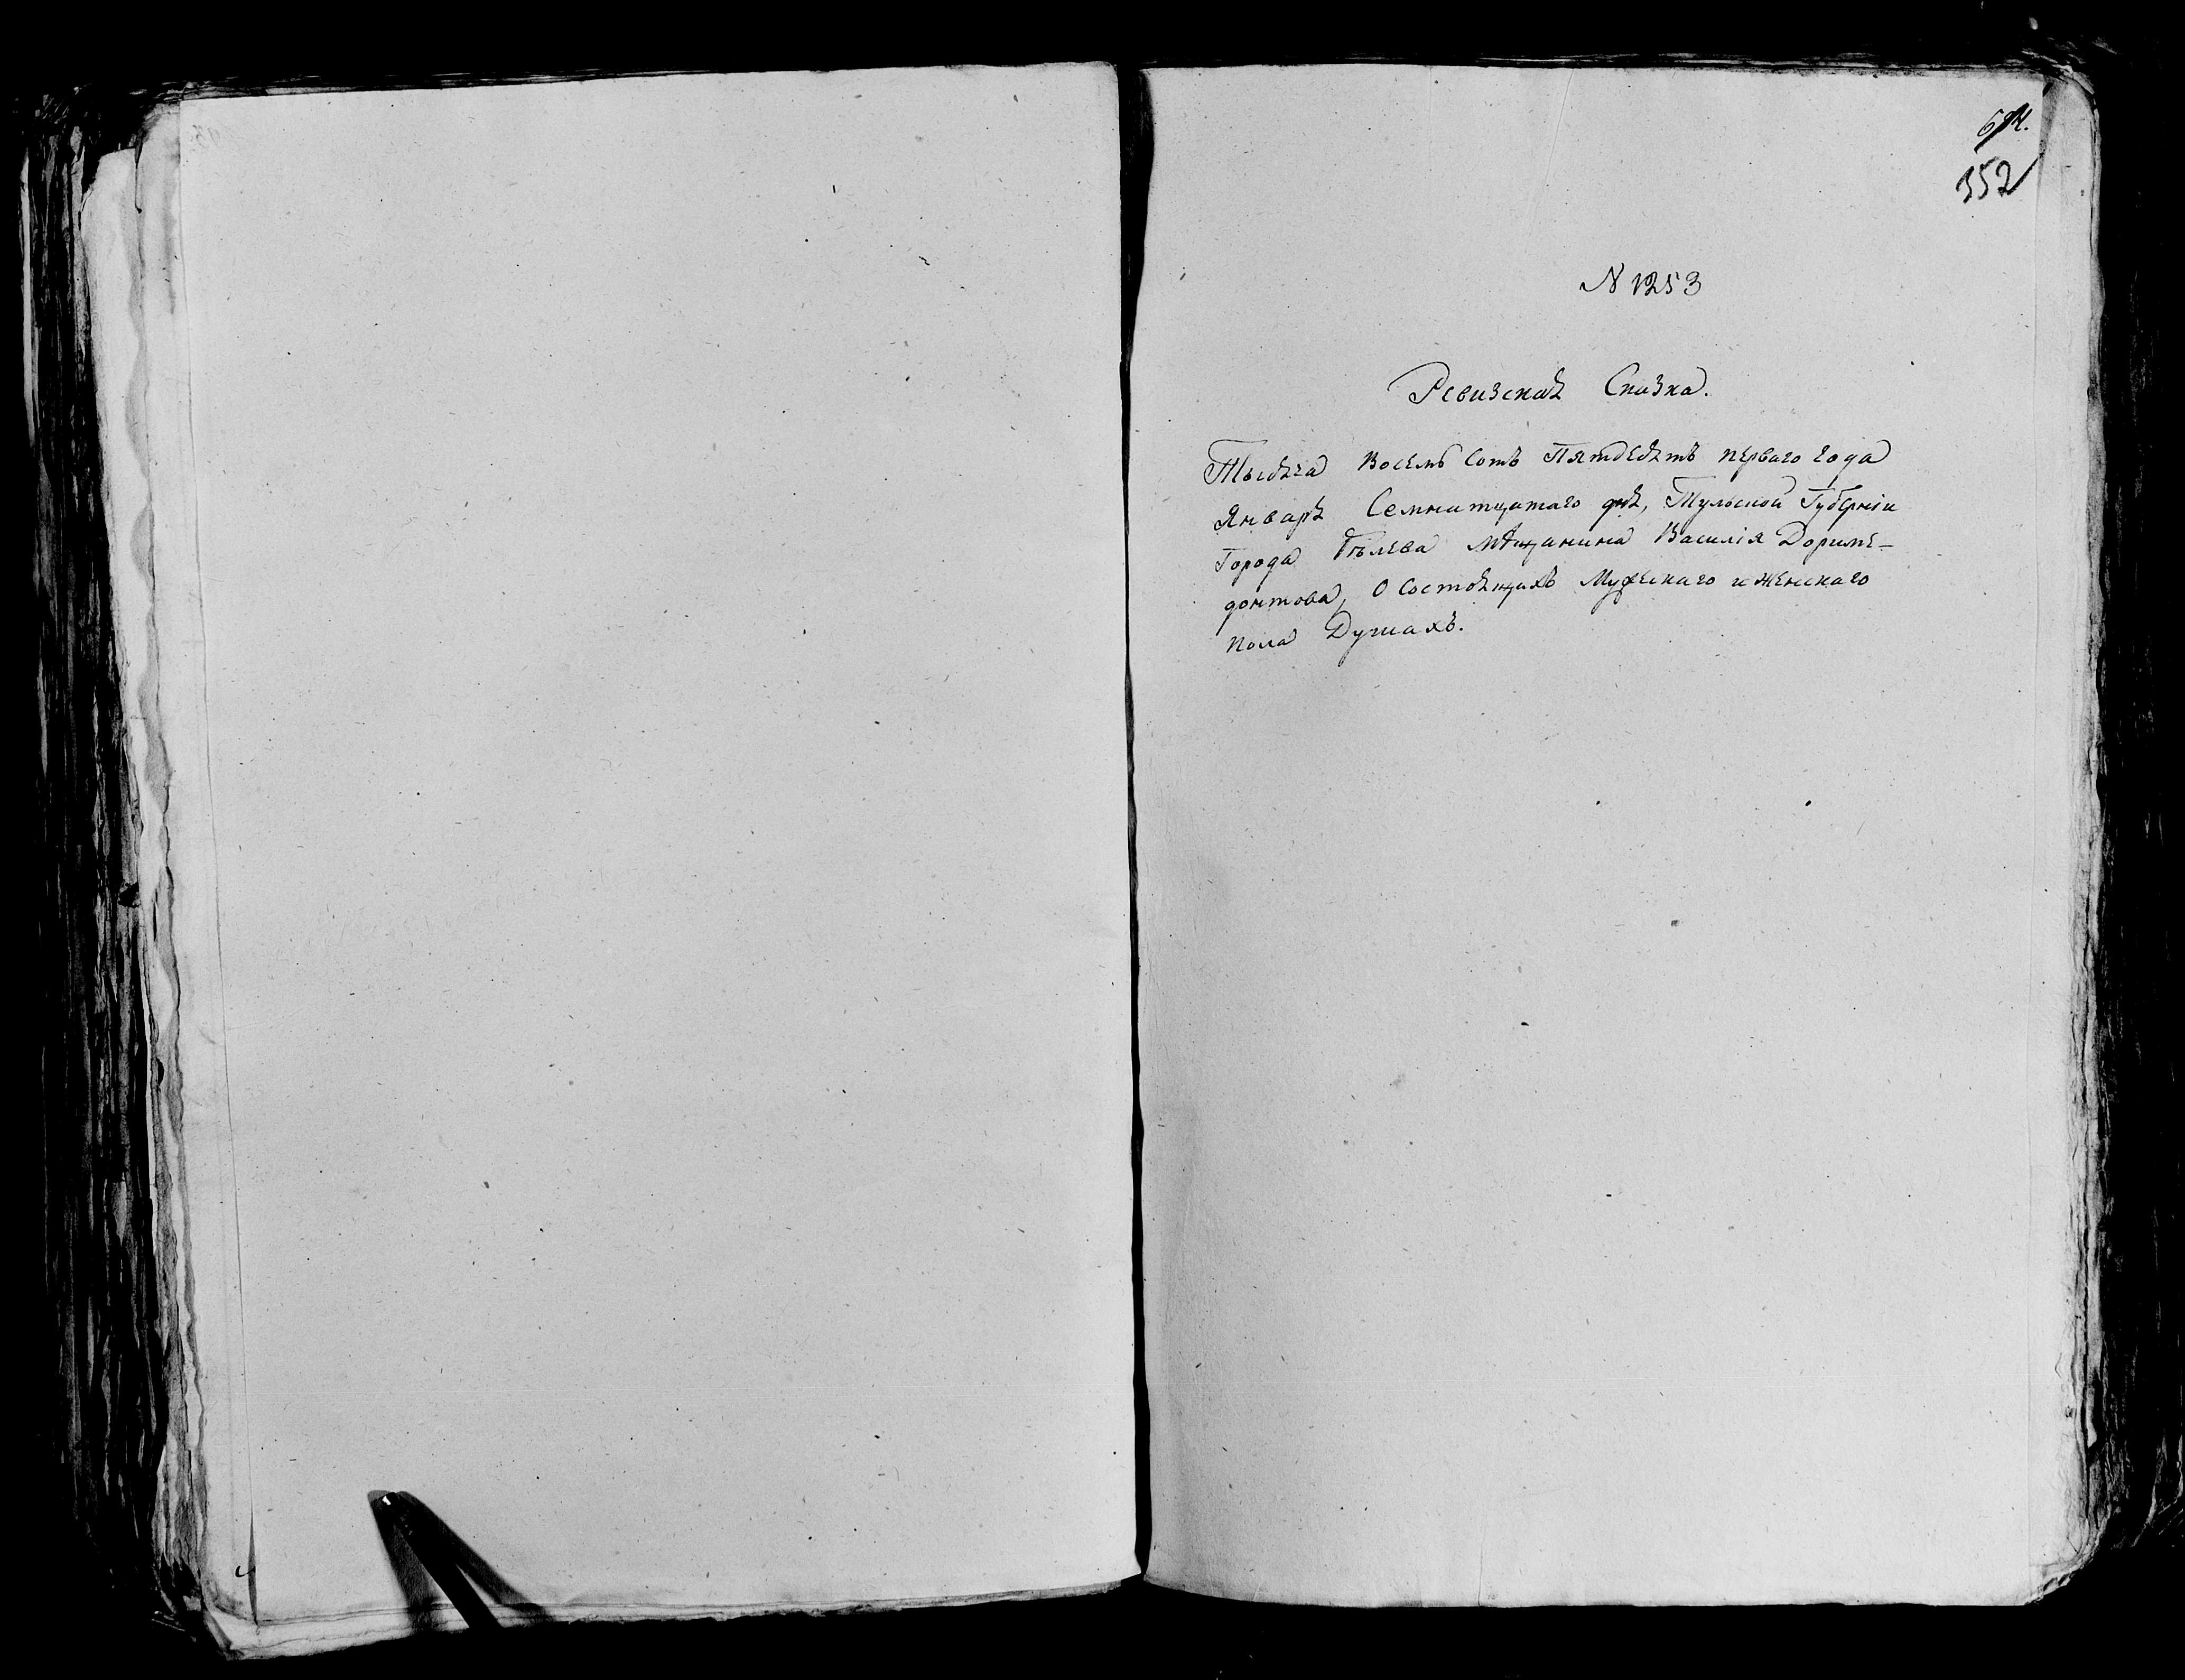 352
N 1253
Ревизская Сказка.
Тысяча Восемь Сотъ Пятдесятъ перваго года
Января Семнатцатаго дня, Тульской Губерніи
Города Бѣлева мѣщанина Василія Дориме-
донтова, О Состоящихъ Мужескаго и женскаго
пола Душахъ.